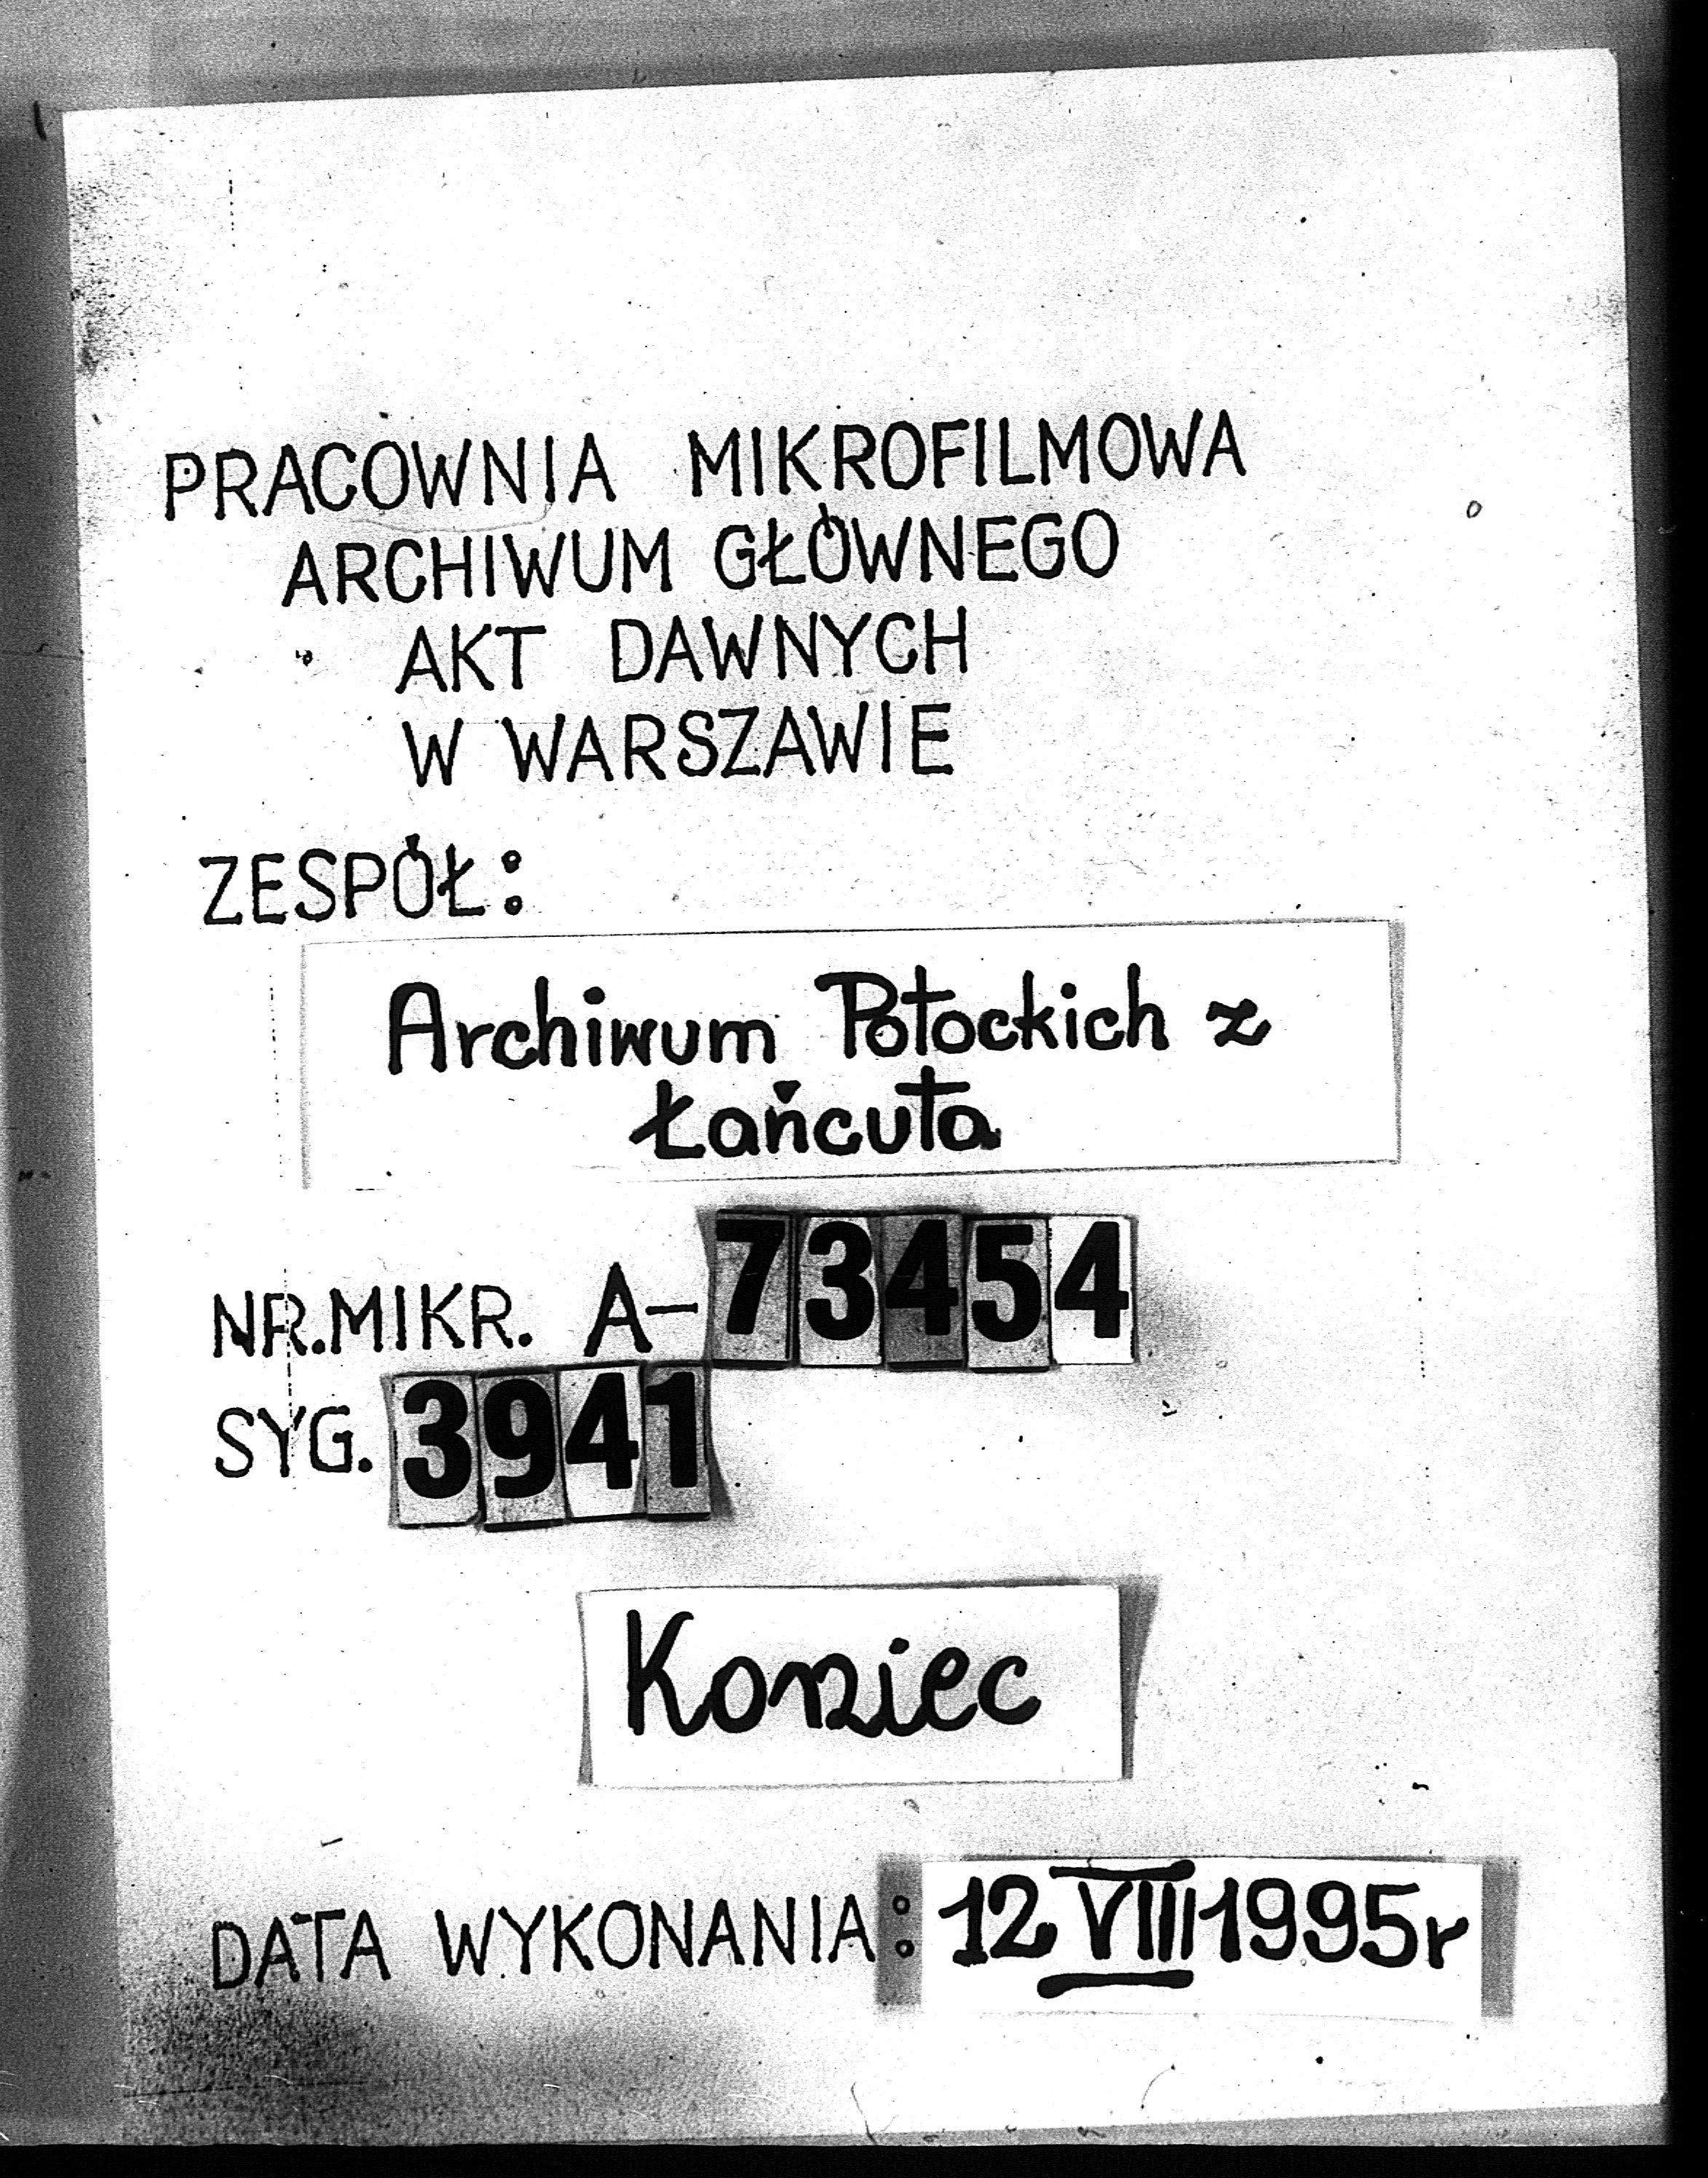 PRACOWNIA MIKROFILMOWA
ARCHIWUM GŁÓWNEGO
AKT DAWNYCH
W WARSZAWIE
ZESPÓŁ:
Archiwum Potockich z
Łańcuta
NR.MIKR. A-73454
SYG. 3941
Koniec
DATA WYKONANIA: 12 VIII 1995r